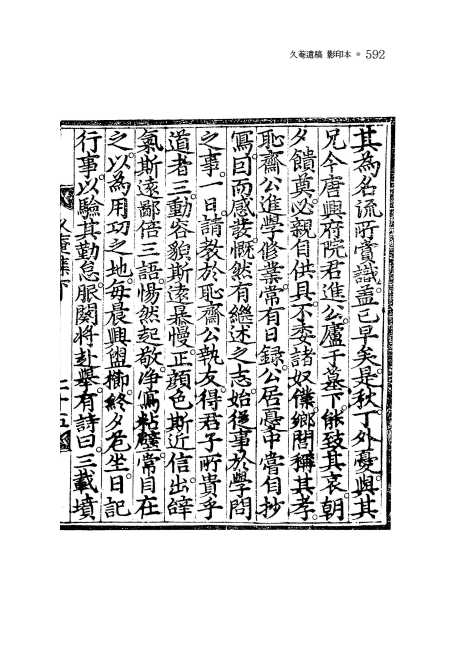 久菴遺稿 影印本 ● 592
其為名流所賞識盖已早矣是秋丁外憂與其
兄今唐興府院君進公廬于墓下能致其哀朝
夕饋奠必親自供具不委諸奴僕鄉閭稱其孝
恥齋公進學修業常有日錄公居憂中嘗自抄
寫因而感發慨然有繼述之志始從事於學問
之事一日請教於恥齋公執友得君子所貴乎
道者三動容貌斯遠暴慢正顏色斯近信出辭
氣斯遠鄙倍三語惕然起敬淨寫粘牕常自在
之以為用功之地每晨興盥櫛終夕危坐日記
行事以驗其勤怠服闋將赴擧有詩曰三載墳